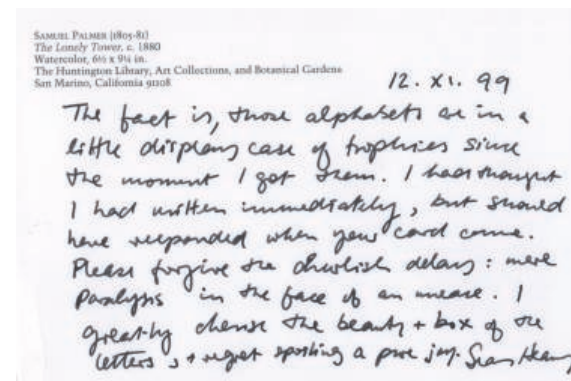 SAMUEL PALMER (1805-81)
The Lonely Tower, c. 1880
Watercolor, 6½ x 9¼ in.
The Huntington Library, Art Collections, and Botanical Gardens
San Marino, California 91108
12. XI. 99
The fact is, those alphabets are in a
little display case of trophies since
the moment I got them. I had thought
I had written immediately, but should
have responded when your card came.
Please forgive the churlish delay: mere
paralysis in the face of an
I
greatly cherish the beauty + box of the
letters + regret spoiling a pure joy. Seamus Heaney